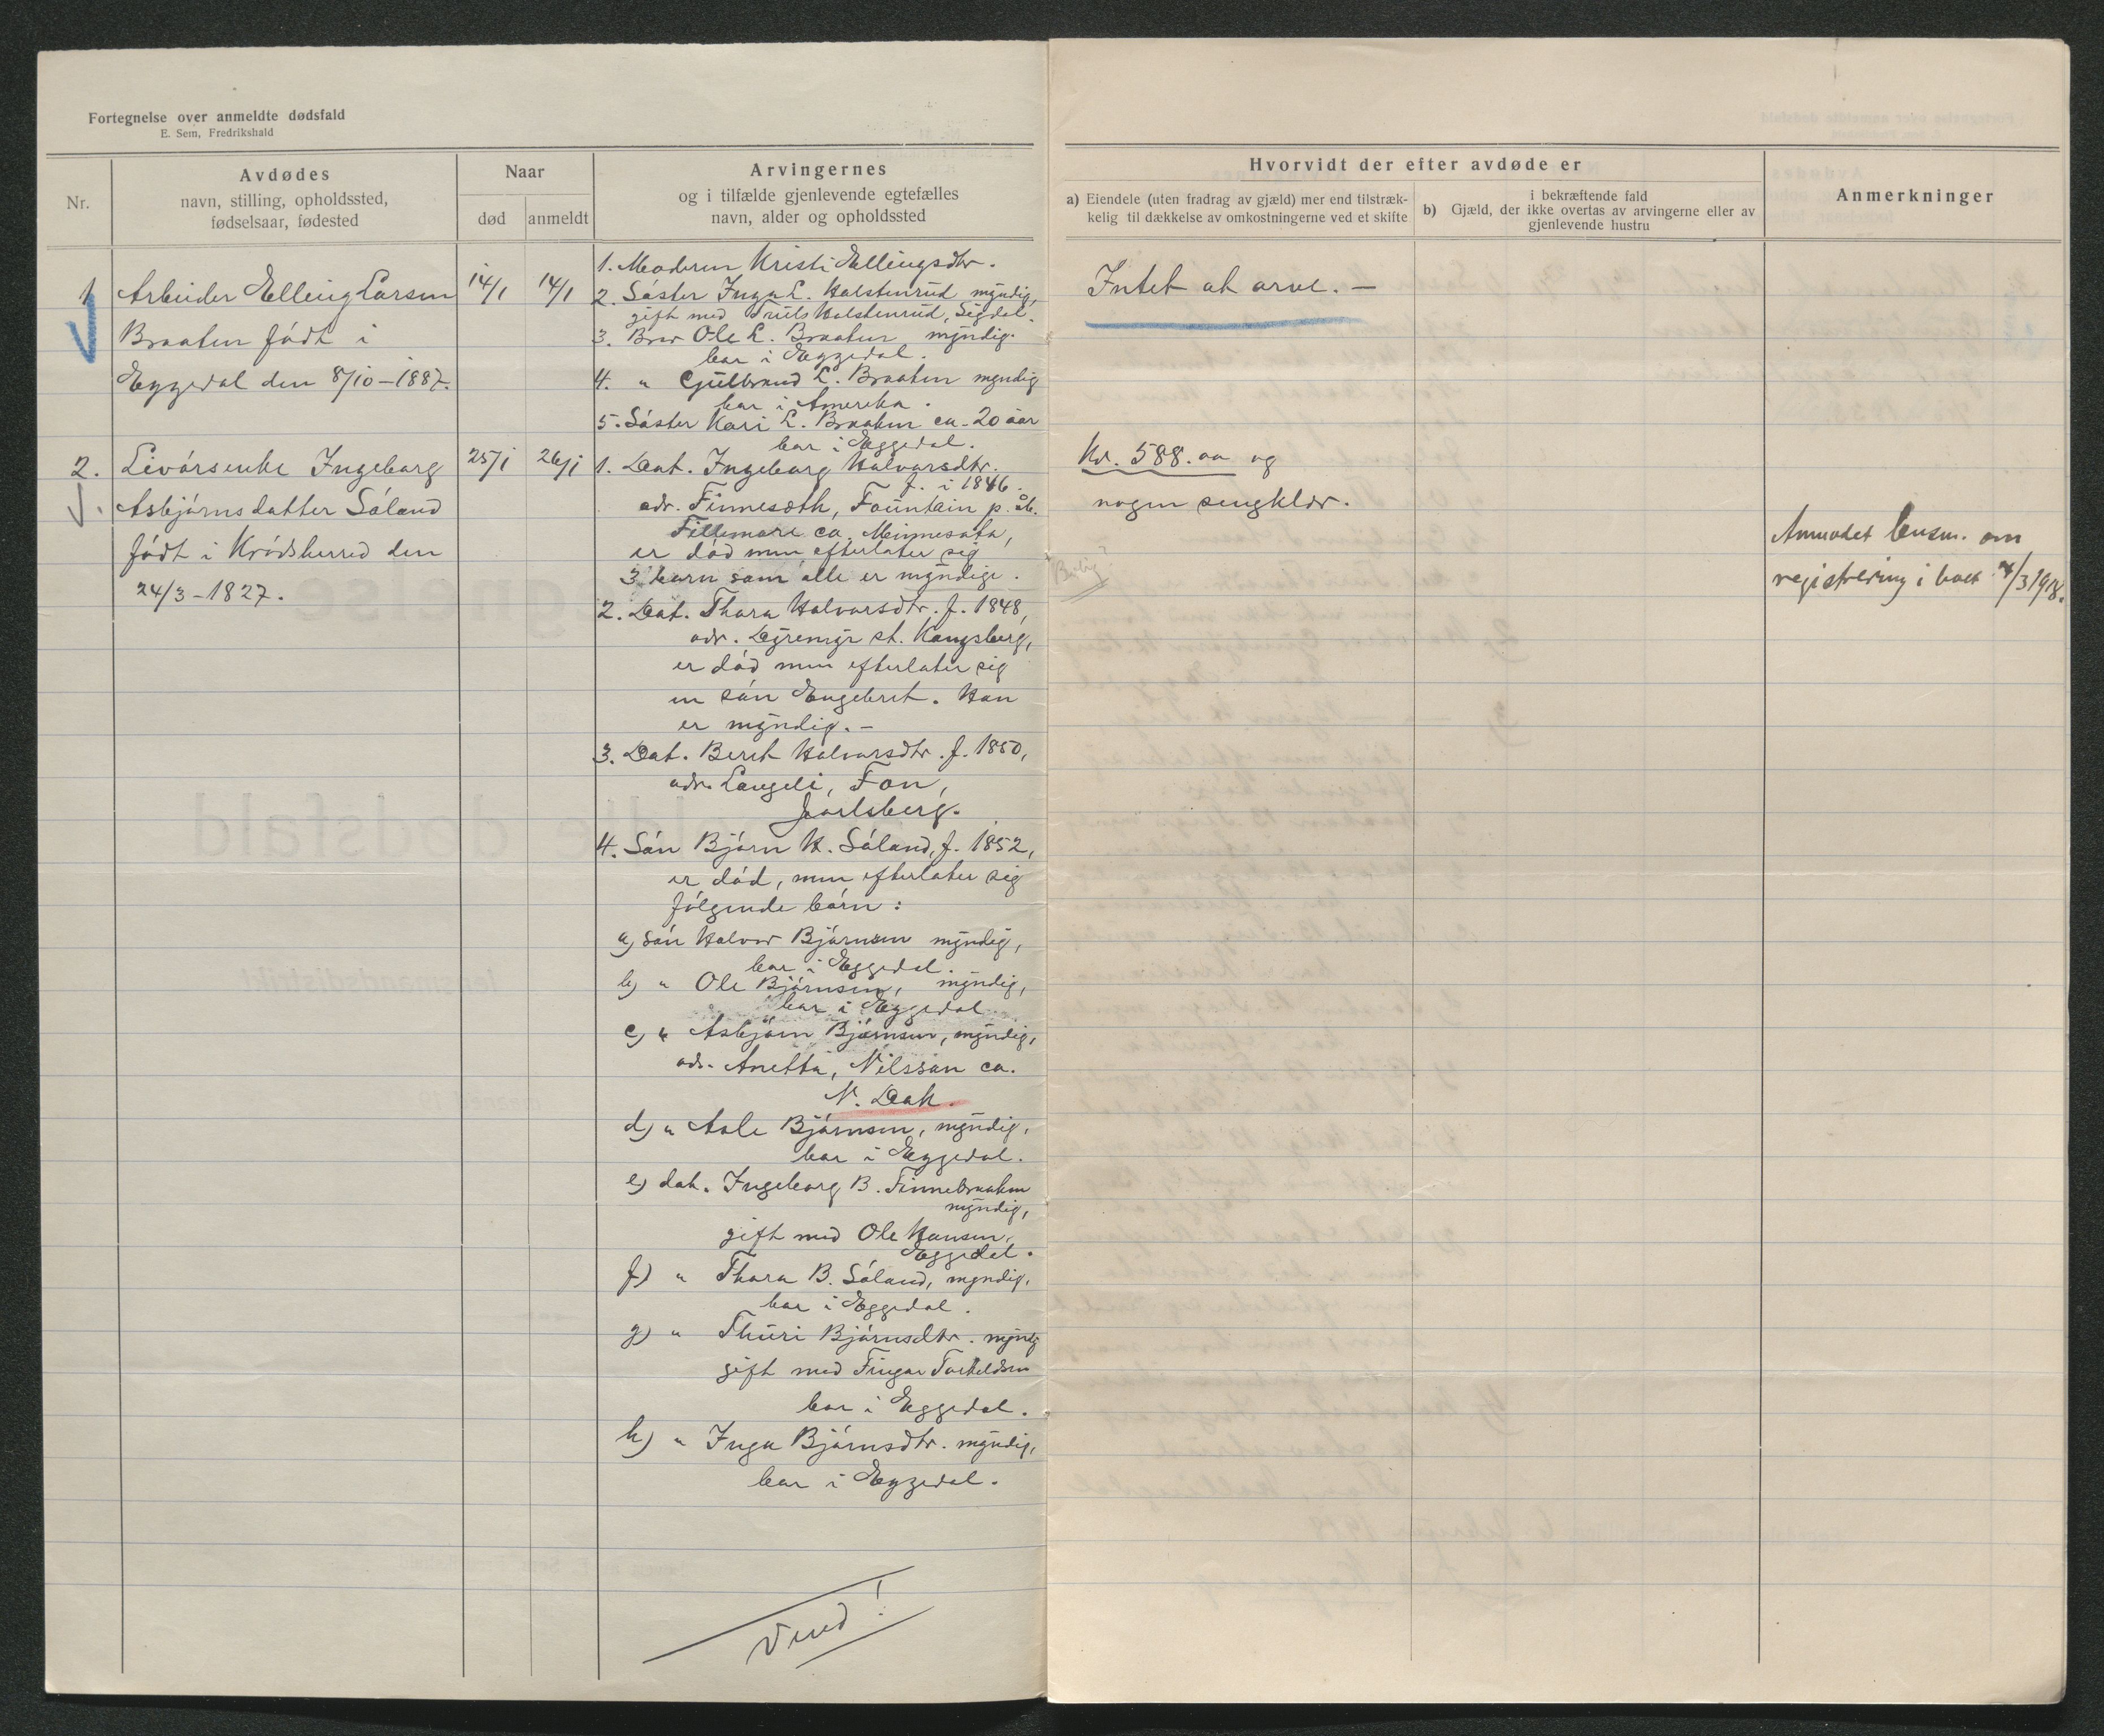 Fortegnelse over anmeldte dødsfald
E. Sem, Fredrikshald
Nr.
Avdødes
navn, stilling, opholdssted,
fødselsaar, fødested
Naar
død
anmeldt
Arvingernes
og i tilfælde gjenlevende egtefælles
navn, alder og opholdssted
Hvorvidt der efter avdøde er
a) Eiendele (uten fradrag av gjæld) mer end tilstræk-
kelig til dækkelse av omkostningerne ved et skifte
i bekræftende fald
b) Gjæld, der ikke overtas av arvingerne eller av
gjenlevende hustru
Anmerkninger
1
Arbeider Elling Larsen
Braaten født i
Eggedal den 8/10-1887.
14/1
14/1
1. Moderen Kristi Ellingsdtr.
2. Søster Inga L. Halstenrud myndig,
gift med Truls Halstenrud, Sigdal.
3. Bror Ole L. Braaten myndig.
bor i Eggedal.
4. " Gulbrand L. Braaten myndig
bor i Amerika.
5. Søster Kari L. Braaten ca. 20 aar
bor i Eggedal.
Intet at arve. -
2.
Livørsenke Ingeborg
Asbjørnsdatter Søland
født i Krødsherred den
24/3-1827.
25/1
26/1
1. Dat. Ingeborg Halvorsdtr.
f. i 1846.
adr. Finneseth, Fountain p. åb.
Fillemore ca. Minnesota,
er død men efterlater sig
3 barn som alle er myndige.
2. Dat. Thora Halvorsdtr. f. 1848,
adr. Dyremyr st. Kongsberg,
er død men efterlater sig
en søn Engebret. Han
er myndig. -
3. Dat. Berit Halvorsdtr. f. 1850,
adr. Langeli, Fon,
Jarlsberg.
4. Søn Bjørn H. Søland, f. 1852,
er død, men efterlater sig
følgende børn:
a) søn Halvor Bjørnsen myndig,
bor i Eggedal.
b) " Ole Bjørnsen, myndig,
bor i Eggedal
c) " Asbjørn Bjørnsen, myndig,
adr. Anetta, Nilsson ca.
N. Dak.
d) " Asle Bjørnsen, myndig,
bor i Eggedal.
e) dat. Ingeborg B. Finnebraaten
myndig,
gift med Ole Hansen,
Eggedal.
f) " Thora B. Søland, myndig,
bor i Eggedal.
g) " Thuri Bjørnsdtr. myndig
gift med Fingar Torkeldsen
bor i Eggedal.
h) " Inga Bjørnsdtr. myndig,
bor i Eggedal.
Vend!
Kr. 588.00 og
nogen sengklær.
Anmodet lensm. om
registrering i boet 4/3 1918.